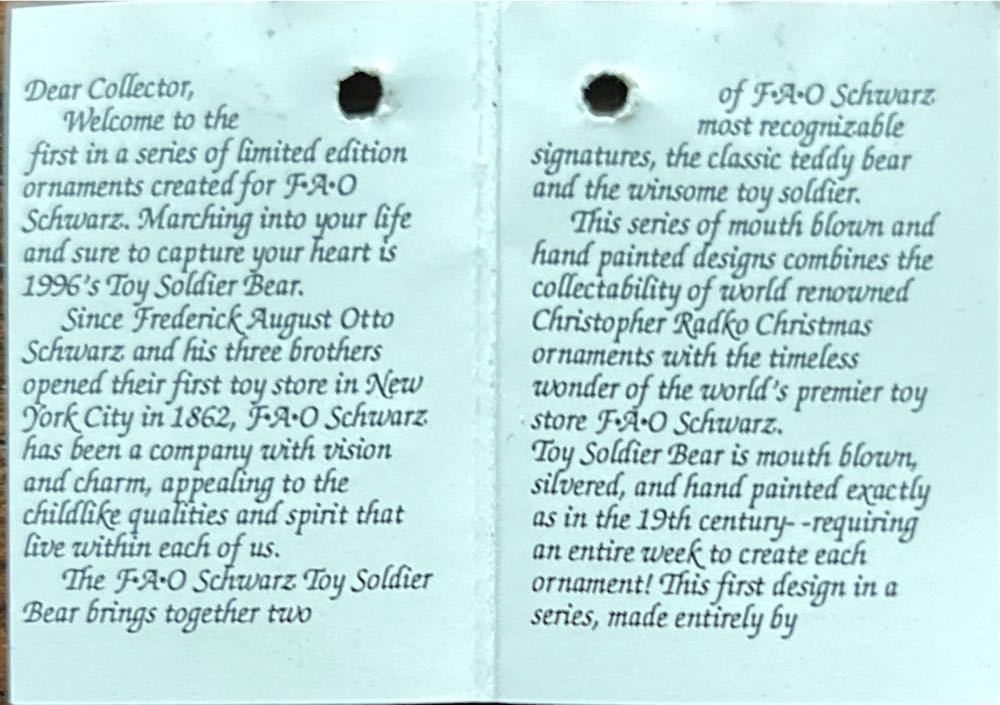 Dear Collector,
Welcome to the
first in a series of limited edition
ornaments created for F•A•O
Schwarz. Marching into your life
and sure to capture your heart is
1996's Toy Soldier Bear.
Since Frederick August Otto
Schwarz and his three brothers
opened their first toy store in New
York City in 1862, F•A•O Schwarz
has been a company with vision
and charm, appealing to the
childlike qualities and spirit that
live within each of us.
The F•A•O Schwarz Toy Soldier
Bear brings together two
of F•A•O Schwarz
most recognizable
signatures, the classic teddy bear
and the winsome toy soldier.
This series of mouth blown and
hand painted designs combines the
collectability of world renowned
Christopher Radko Christmas
ornaments with the timeless
wonder of the world's premier toy
store F•A•O Schwarz.
Toy Soldier Bear is mouth blown,
silvered, and hand painted exactly
as in the 19th century- -requiring
an entire week to create each
ornament! This first design in a
series, made entirely by